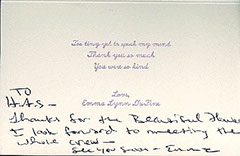 Too tiny yet to speak my mind
Thank you so much
You were so kind
Love,
Emma Lynn
TO
H.A.S—
Thanks for the Beautiful
I look forward to meeting the
whole crew—
See you soon— Emma